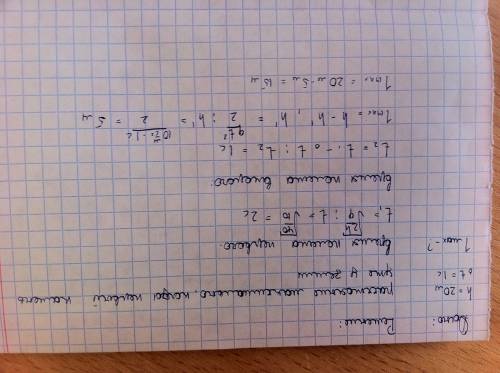 Дано:
h = 20м
Δt = 1с
l max - ?
Решение:
расстояние максимально, когда первый камень
уже у земли
время полета первого:
t₁ = √(2h/g) ; t = √(40/10) = 2с
время полета второго:
t₂ = t₁ - Δt ; t₂ = 1с
l max = h - h' ; h' = gt²/2 ; h' = 10·1с/2 = 5м
l max = 20м - 5м = 15м